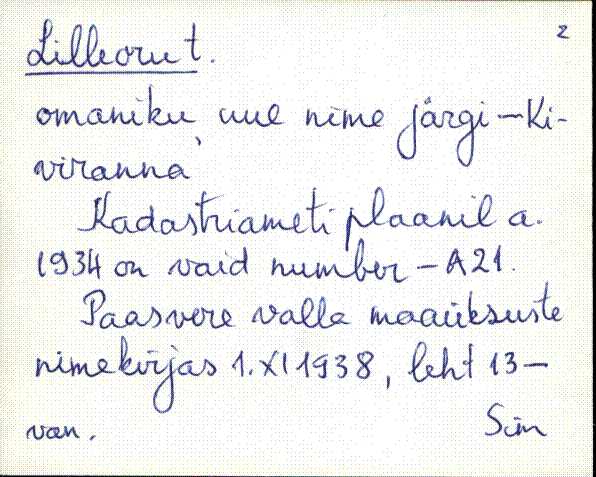 2
Lilleoru t.
omaniku uue nime järgi – Ki-
viranna
Kadastriameti plaanil a.
1934 on vaid number – A21.
Paasvere valla maaüksuste
nimekirjas 1.XI 1938, leht 13 –
van. Sim